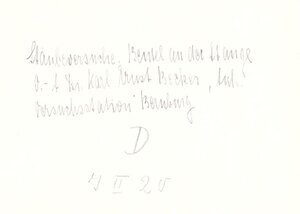 Stäubeversuche, Beutel an der Stange
Karl Ernst Becker,
Versuchsstation Bernburg
D
II 25